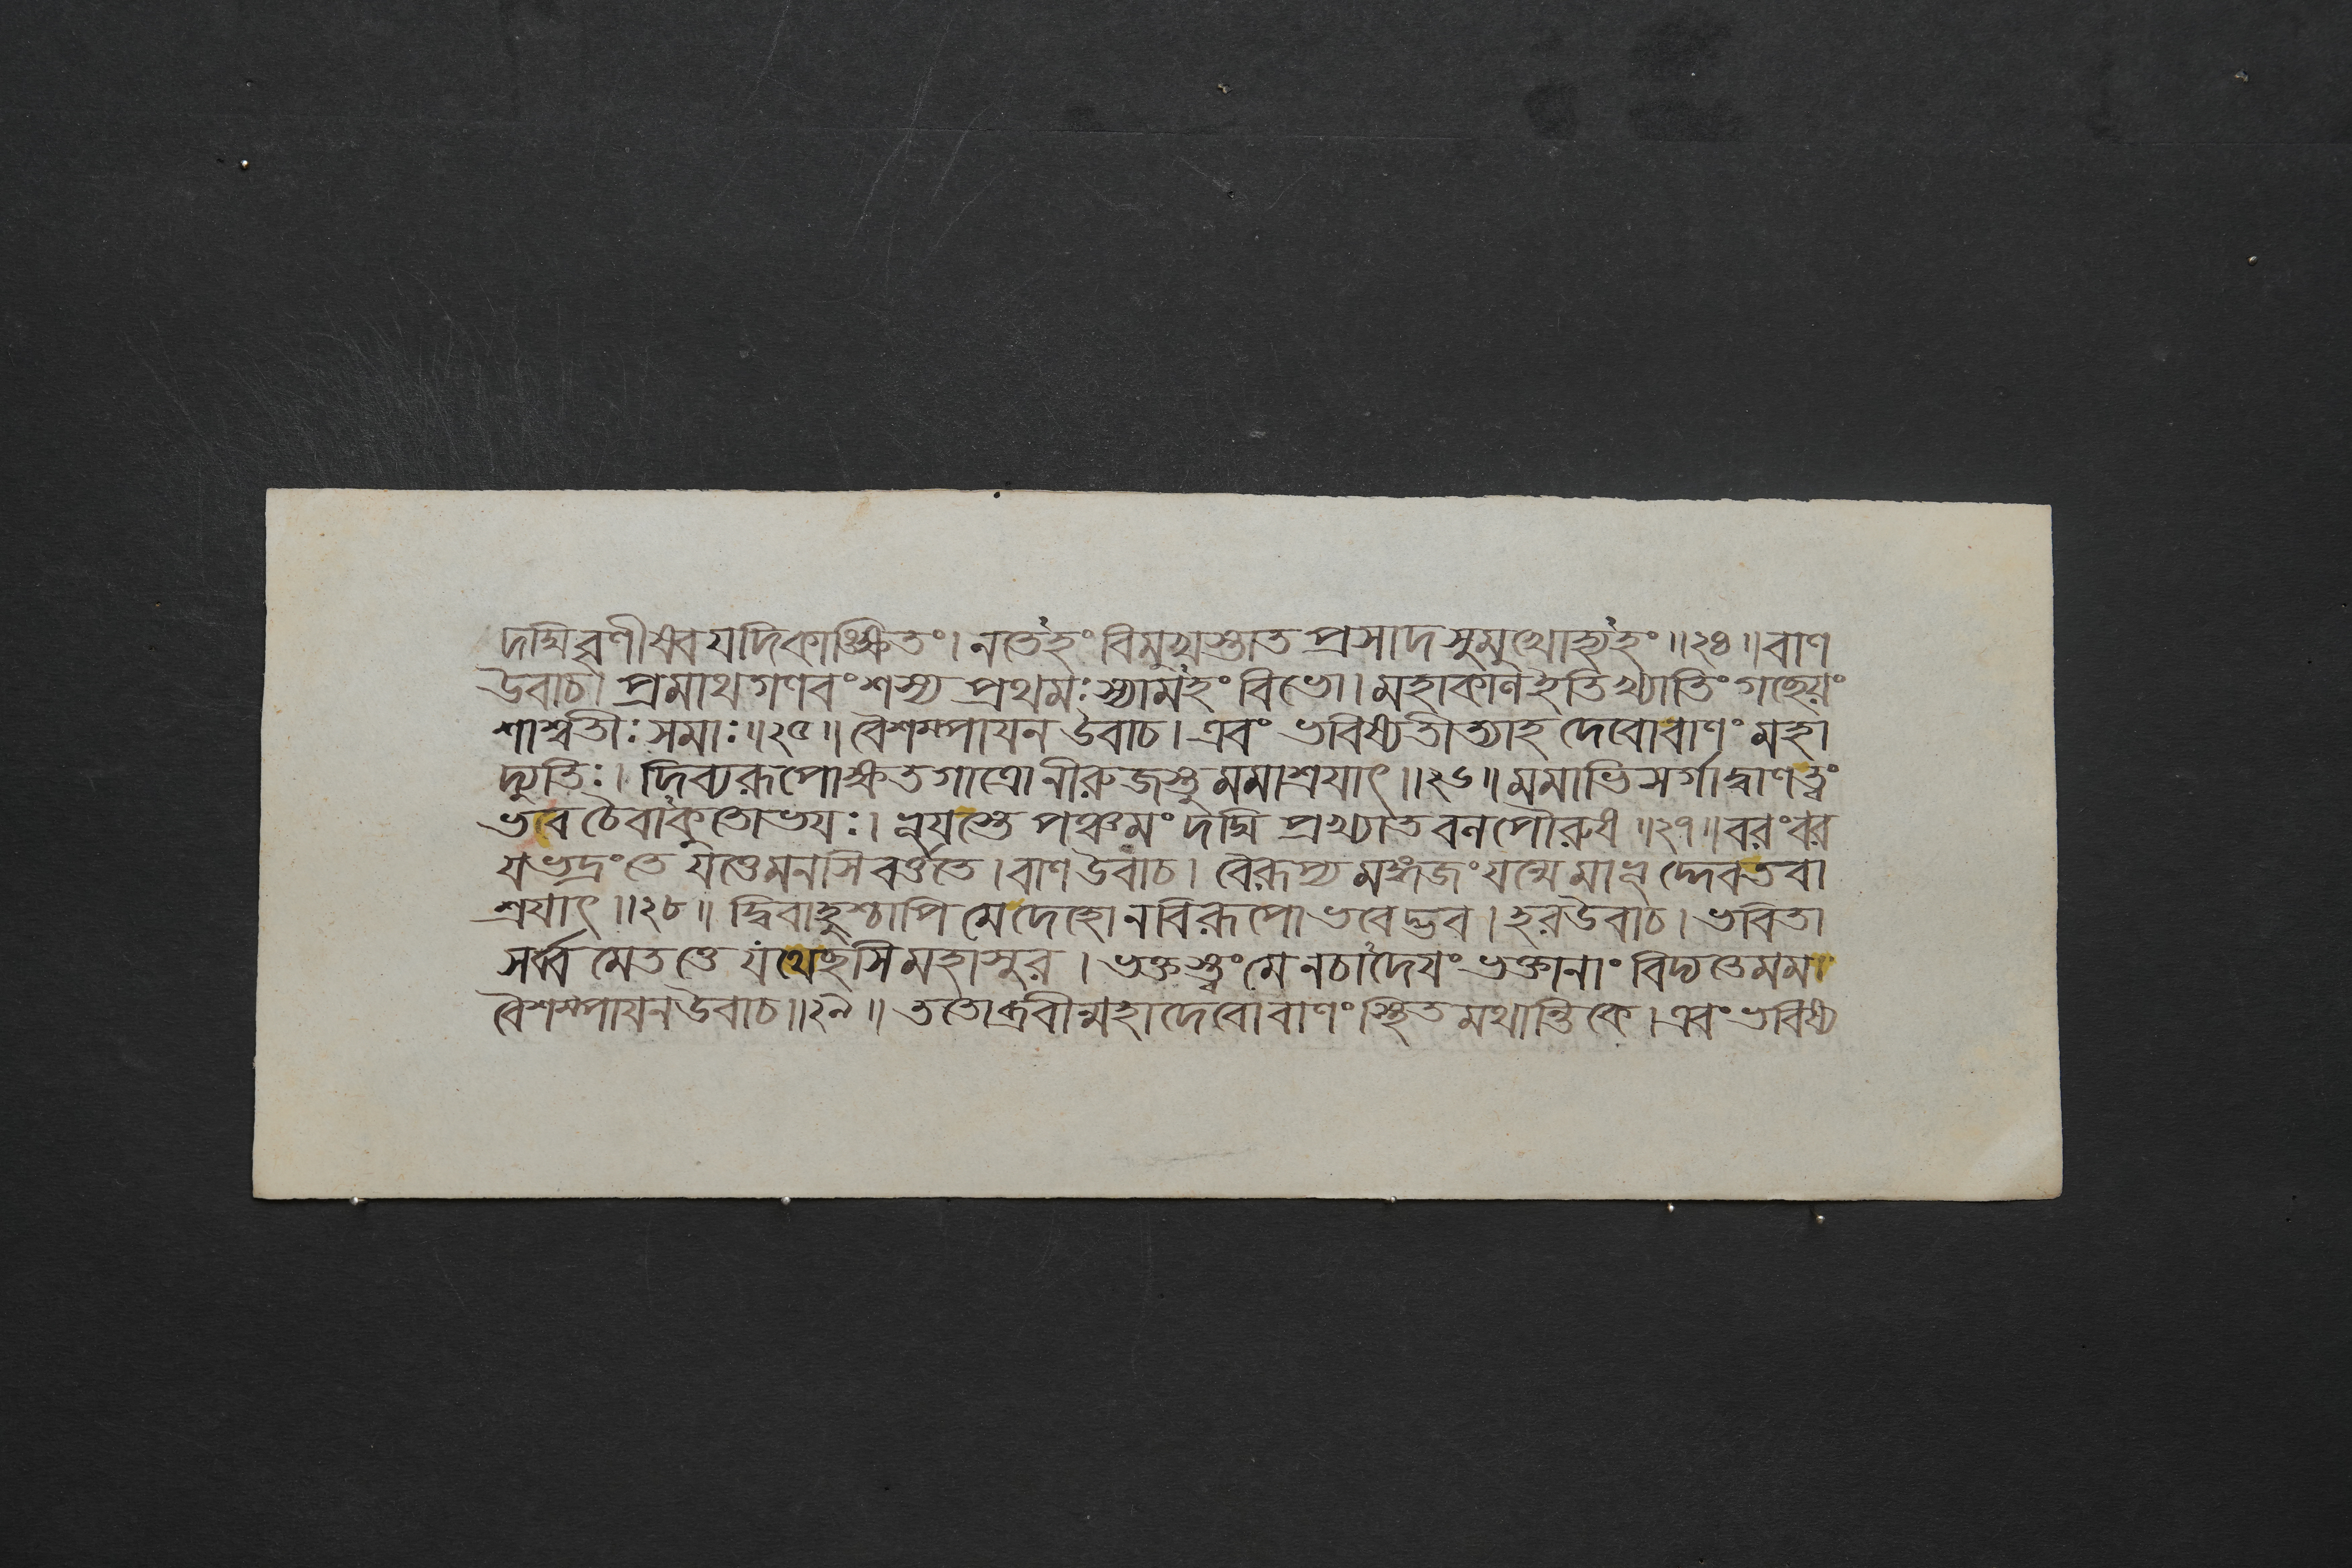 দদ্মিবৃণীষ্বেব যদিকাঙ্ক্ষিতং। নতেঽহং বিমুখস্তাত প্রসাদসুমুখোহ্যঽহং॥২৪॥বাণ
উবাচ। প্রমাথগণবংশস্য প্রথমঃ স্যামঽহং বিভো। মহাকাল ইতিখ্যাতিং গচ্ছেয়ং
শাশ্বতীঃ সমাঃ॥২৫॥ বৈশম্পায়ন উবাচ। এবং ভবিষ্যতীত্যাহ দেবোবাণং মহা
দ্যুতিঃ। দিব্যরূপোক্ষত গাত্রোনীরুজস্তু মমাশ্রয়াৎ॥২৬॥ মমাভিসর্গাদ্বাণত্ত্বং
ভবচৈবাঽকুতোভয়ঃ। ভূয়স্তে পঞ্চমং দদ্মি প্রখ্যাতবলপৌরুষ॥২৭॥ বরংবর
য়ভদ্রংতে যত্তেমনসি বর্ত্ততে। বাণ উবাচ। বৈরূপ্যমঙ্গজং যন্মে মাভূদ্দেবতবা
শ্রয়াৎ॥২৮॥ দ্বিবাহুশ্চাপি মেদেহো নবিরূপো ভবেদ্ভব। হরউবাচ। ভবিতা
সর্ব্বমেতত্তে যথেচ্ছসি মহাসুর। ভক্তস্ত্বংমে নচাঽদেয়ং ভক্তানাং বিদ্যতেমম।
বৈশম্পায়ন উবাচ॥২৯॥ ততোব্রবীন্মহাদেবো বাণং স্থিতমথান্তিকে। এবং ভবিষ্য